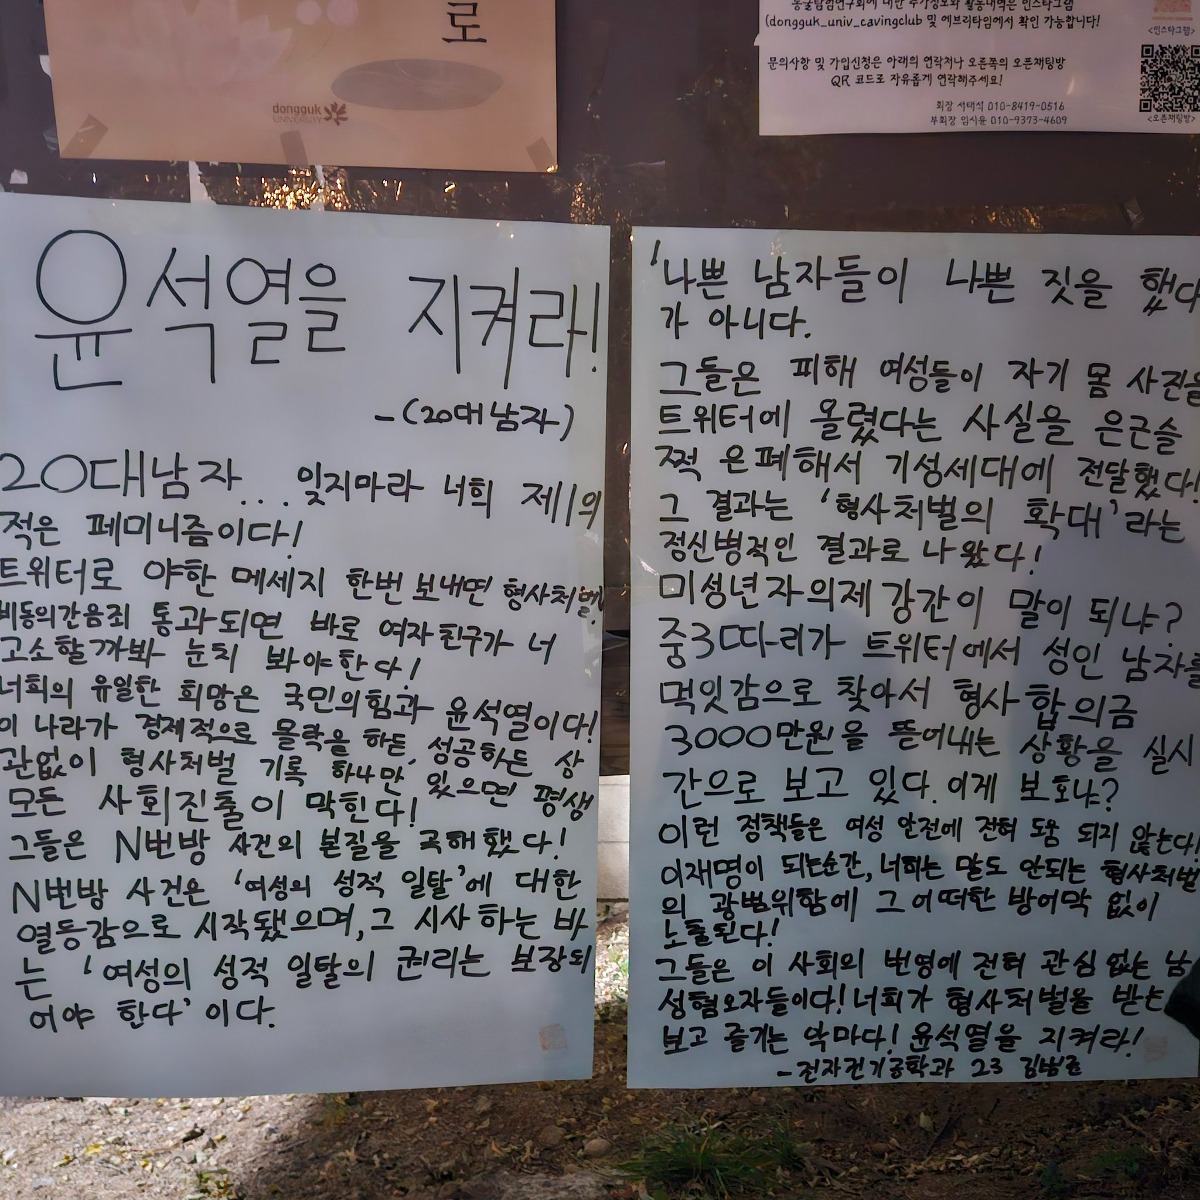 로
dongguk
UNIVERSITY
동굴탐험연구회에 대한 추가정보와 활동내역은 인스타그램
(dongguk_univ_cavingclub 및 에브리타임에서 확인 가능합니다!
문의사항 및 가입신청은 아래의 연락처나 오른쪽의 오픈채팅방
QR 코드로 자유롭게 연락해주세요!
회장 서태식 010-8419-0516
부회장 임시윤 010-9373-4609
<인스타그램>
<오픈채팅방>
윤석열을 지켜라!
-(20대남자)
20대남자... 잊지마라 너희 제1의
적은 페미니즘이다!
트위터로 야한 메세지 한번 보내면 형사처벌!
비동의간음죄 통과되면 바로 여자친구가 너
고소할까봐 눈치 봐야한다!
너희의 유일한 희망은 국민의힘과 윤석열이다!
이 나라가 경제적으로 몰락을 하든, 성공하든 상
관없이 형사처벌 기록 하나만 있으면 평생
모든 사회진출이 막힌다!
그들은 N번방 사건의 본질을 곡해했다!
N번방 사건은 '여성의 성적 일탈'에 대한
열등감으로 시작됐으며, 그 시사하는 바
는 '여성의 성적 일탈의 권리는 보장되
어야 한다' 이다.
'나쁜 남자들이 나쁜 짓을 했다
가 아니다.
그들은 피해 여성들이 자기 몸 사진을
트위터에 올렸다는 사실을 은근슬
쩍 은폐해서 기성세대에 전달했다!
그 결과는 '형사처벌의 확대'라는
정신병적인 결과로 나왔다!
미성년자의제강간이 말이 되냐?
중3따리가 트위터에서 성인 남자를
먹잇감으로 찾아서 형사합의금
3000만원을 뜯어내는 상황을 실시
간으로 보고 있다. 이게 보호냐?
이런 정책들은 여성 안전에 전혀 도움 되지 않는다!
이재명이 되는순간, 너희는 말도 안되는 형사처벌
의 광범위함에 그 어떠한 방어막 없이
노출된다!
그들은 이 사회의 번영에 전혀 관심 없는 남
성혐오자들이다! 너희가 형사처벌을 받는
보고 즐기는 악마다! 윤석열을 지켜라!
-전자전기공학과 23 김범준